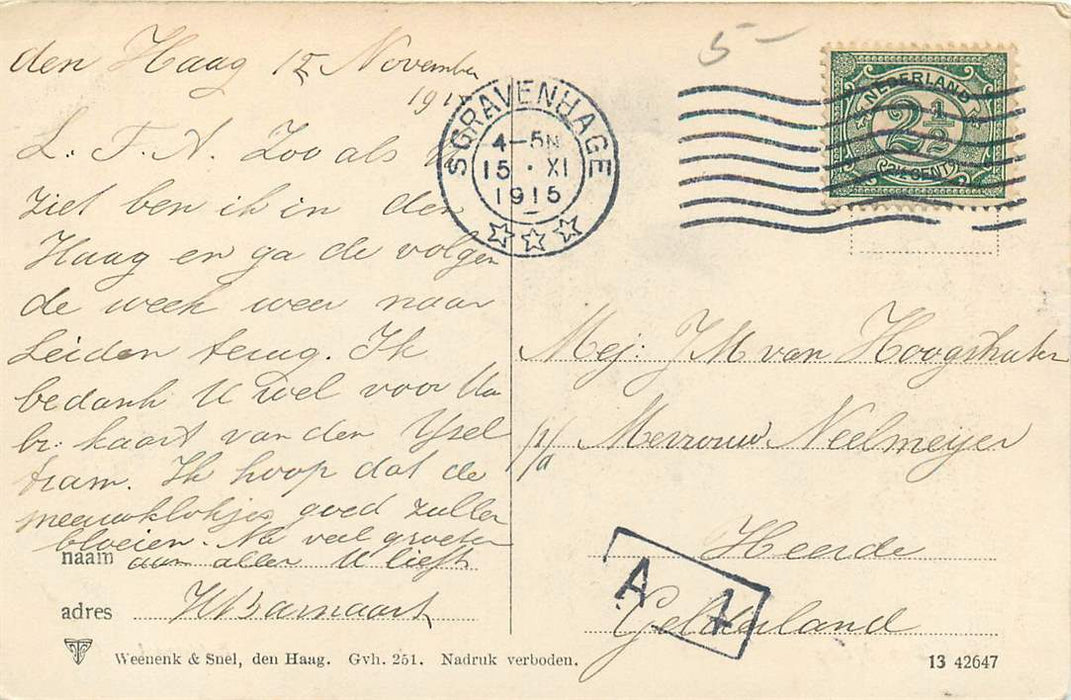 den Haag 15 November
191
L. F. A. Zoo als U
ziet ben ik in den
Haag en ga de volgen
de week weer naar
Leiden terug. Ik
bedank U wel voor Uw
br. kaart van den Ysel
tram. Ik hoop dat de
sneeuwklokjes goed zullen
bloeien. Na veel groeten
aan allen U liefh
naam
adres
Weenenk & Snel, den Haag. Gvh. 251. Nadruk verboden.
5-
'SGRAVENHAGE
4-5N
15 · XI
1915
NEDERLAND
2½
2½ CENT
Mej: J M van Hoogstraten
p/a Mevrouw Neelmeyer
Heerde
Gelderland
A 1
13 42647